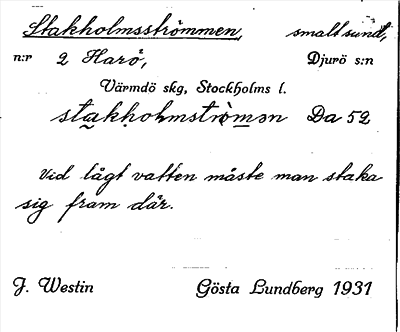 Stakholmsströmmen, smalt sund,
n:r 2 Harö, Djurö s:n
Värmdö skg, Stockholms l.
stakholmströmən Da 52
Vid lågt vatten måste man staka
sig fram där.
J. Westin Gösta Lundberg 1931